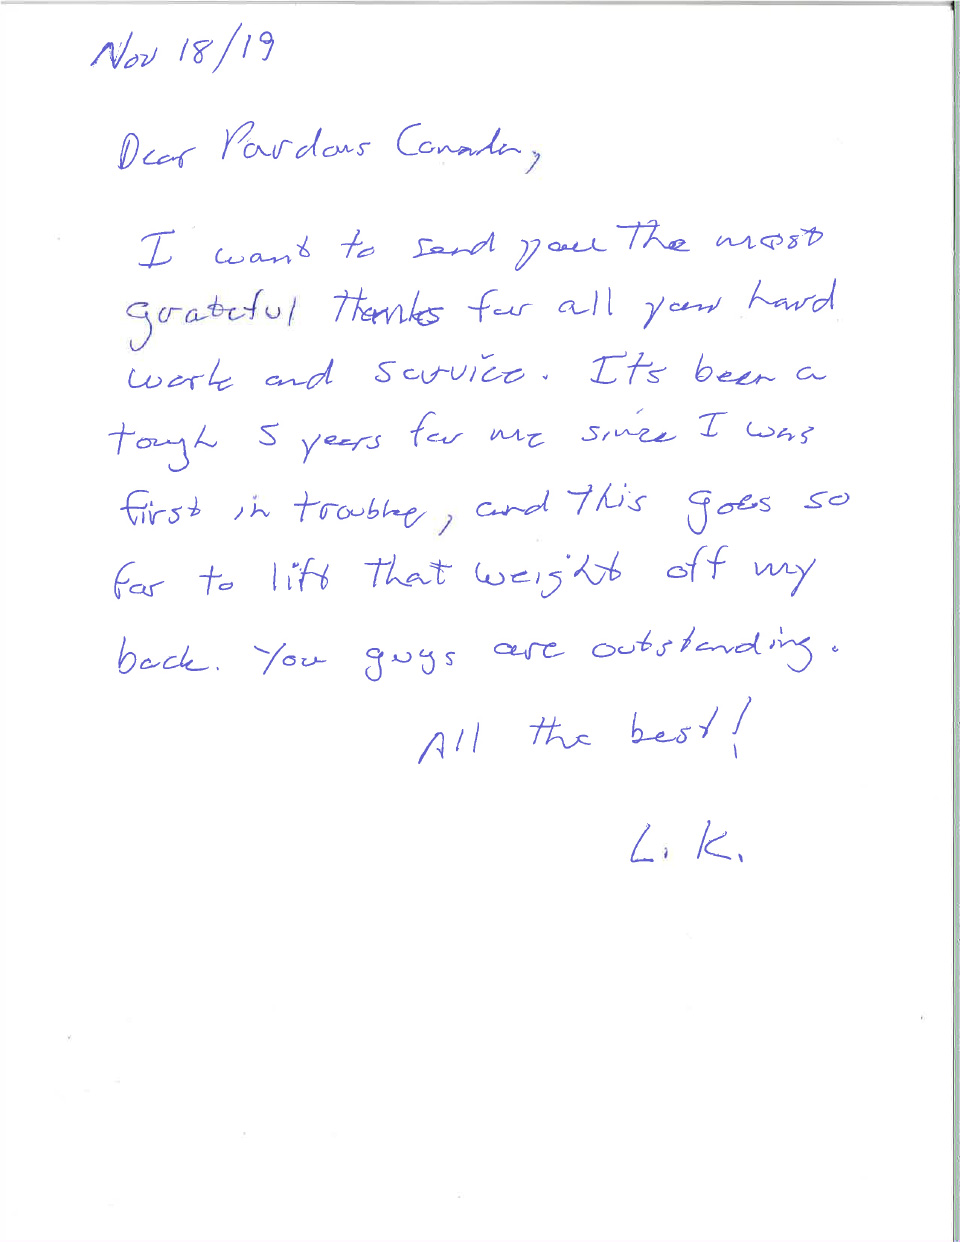 Nov 18/19
Dear Pardons Canada,
I want to send you the most
grateful thanks for all your hard
work and service. It's been a
tough 5 years for me since I was
first in trouble, and this goes so
far to lift that weight off my
back. You guys are outstanding.
All the best!
L. K.